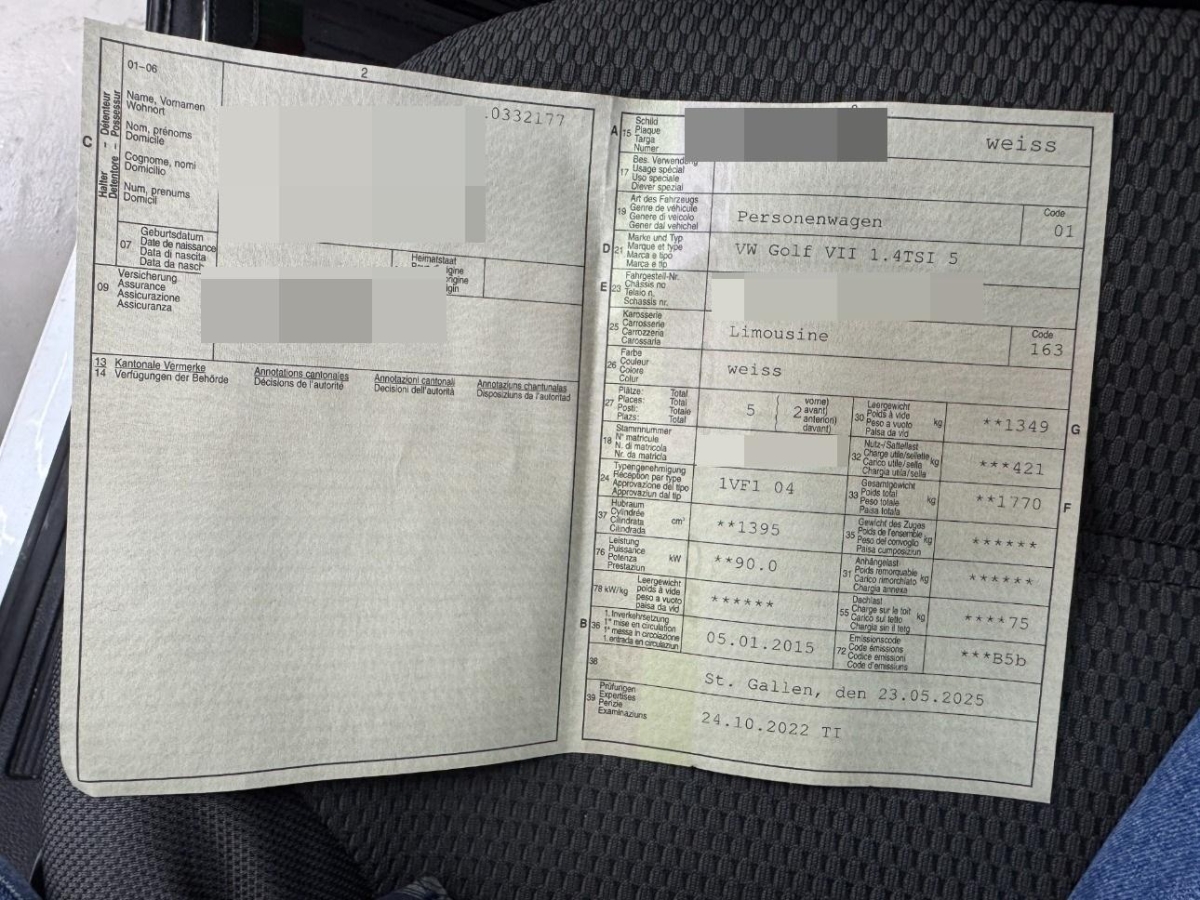 01-06
2
Halter - Détenteur
Detentore - Possessur
C
Name, Vornamen
Wohnort
Nom, prénoms
Domicile
Cognome, nomi
Domicilio
Num, prenums
Domicil
.0332177
07
Geburtsdatum
Date de naissance
Data di nascita
Data da nasch
Heimatstaat
09
Versicherung
Assurance
Assicurazione
Assicuranza
13 Kantonale Vermerke
Annotations cantonales
Annotazioni cantonali
Annotaziuns chantunalas
14 Verfügungen der Behörde
Décisions de l'autorité
Decisioni dell'autorità
Disposiziuns da l'autoritad
A 15
Schild
Plaque
Targa
Numer
weiss
17
Bes. Verwendung
Usage spécial
Uso speciale
Diever spezial
19
Art des Fahrzeugs
Genre de véhicule
Genere di veicolo
Gener dal vehichel
Personenwagen
Code
01
D 21
Marke und Typ
Marque et type
Marca e tipo
Marca e tip
VW Golf VII 1.4TSI 5
E 23
Fahrgestell-Nr.
Châssis no
Telaio n.
Schassis nr.
25
Karosserie
Carrosserie
Carrozzeria
Carossaria
Limousine
Code
163
26
Farbe
Couleur
Colore
Colur
weiss
27
Plätze: Total
Places: Total
Posti: Totale
Plazs: Total
5
2
vorne)
avant)
anteriori)
davant)
30
Leergewicht
Poids à vide
Peso a vuoto
Paisa da vid
kg
**1349
G
18
Stammnummer
N° matricule
N. di matricola
Nr. da matricla
32
Nutz-/Sattellast
Charge utile/sellette
Carico utile/sella
Chargia utila/sella
kg
***421
24
Typengenehmigung
Réception par type
Approvazione del tipo
Approvaziun dal tip
1VF1 04
33
Gesamtgewicht
Poids total
Peso totale
Paisa totala
kg
**1770
F
37
Hubraum
Cylindrée
Cilindrata
Cilindrada
cm³
**1395
35
Gewicht des Zuges
Poids de l'ensemble
Peso del convoglio
Paisa cumposiziun
kg
******
76
Leistung
Puissance
Potenza
Prestaziun
kW
**90.0
31
Anhängelast
Poids remorquable
Carico rimorchiato
Chargia annexa
kg
******
78 kW/kg
Leergewicht
poids à vide
peso a vuoto
paisa da vid
******
55
Dachlast
Charge sur le toit
Carico sul tetto
Chargia sin il tetg
kg
****75
B 36
1. Inverkehrsetzung
1re mise en circulation
1a messa in circolazione
1. entrada en circulaziun
05.01.2015
72
Emissionscode
Code émissions
Codice emissioni
Code d'emissiuns
***B5b
38
St. Gallen, den 23.05.2025
39
Prüfungen
Expertises
Perizie
Examinaziuns
24.10.2022 TI